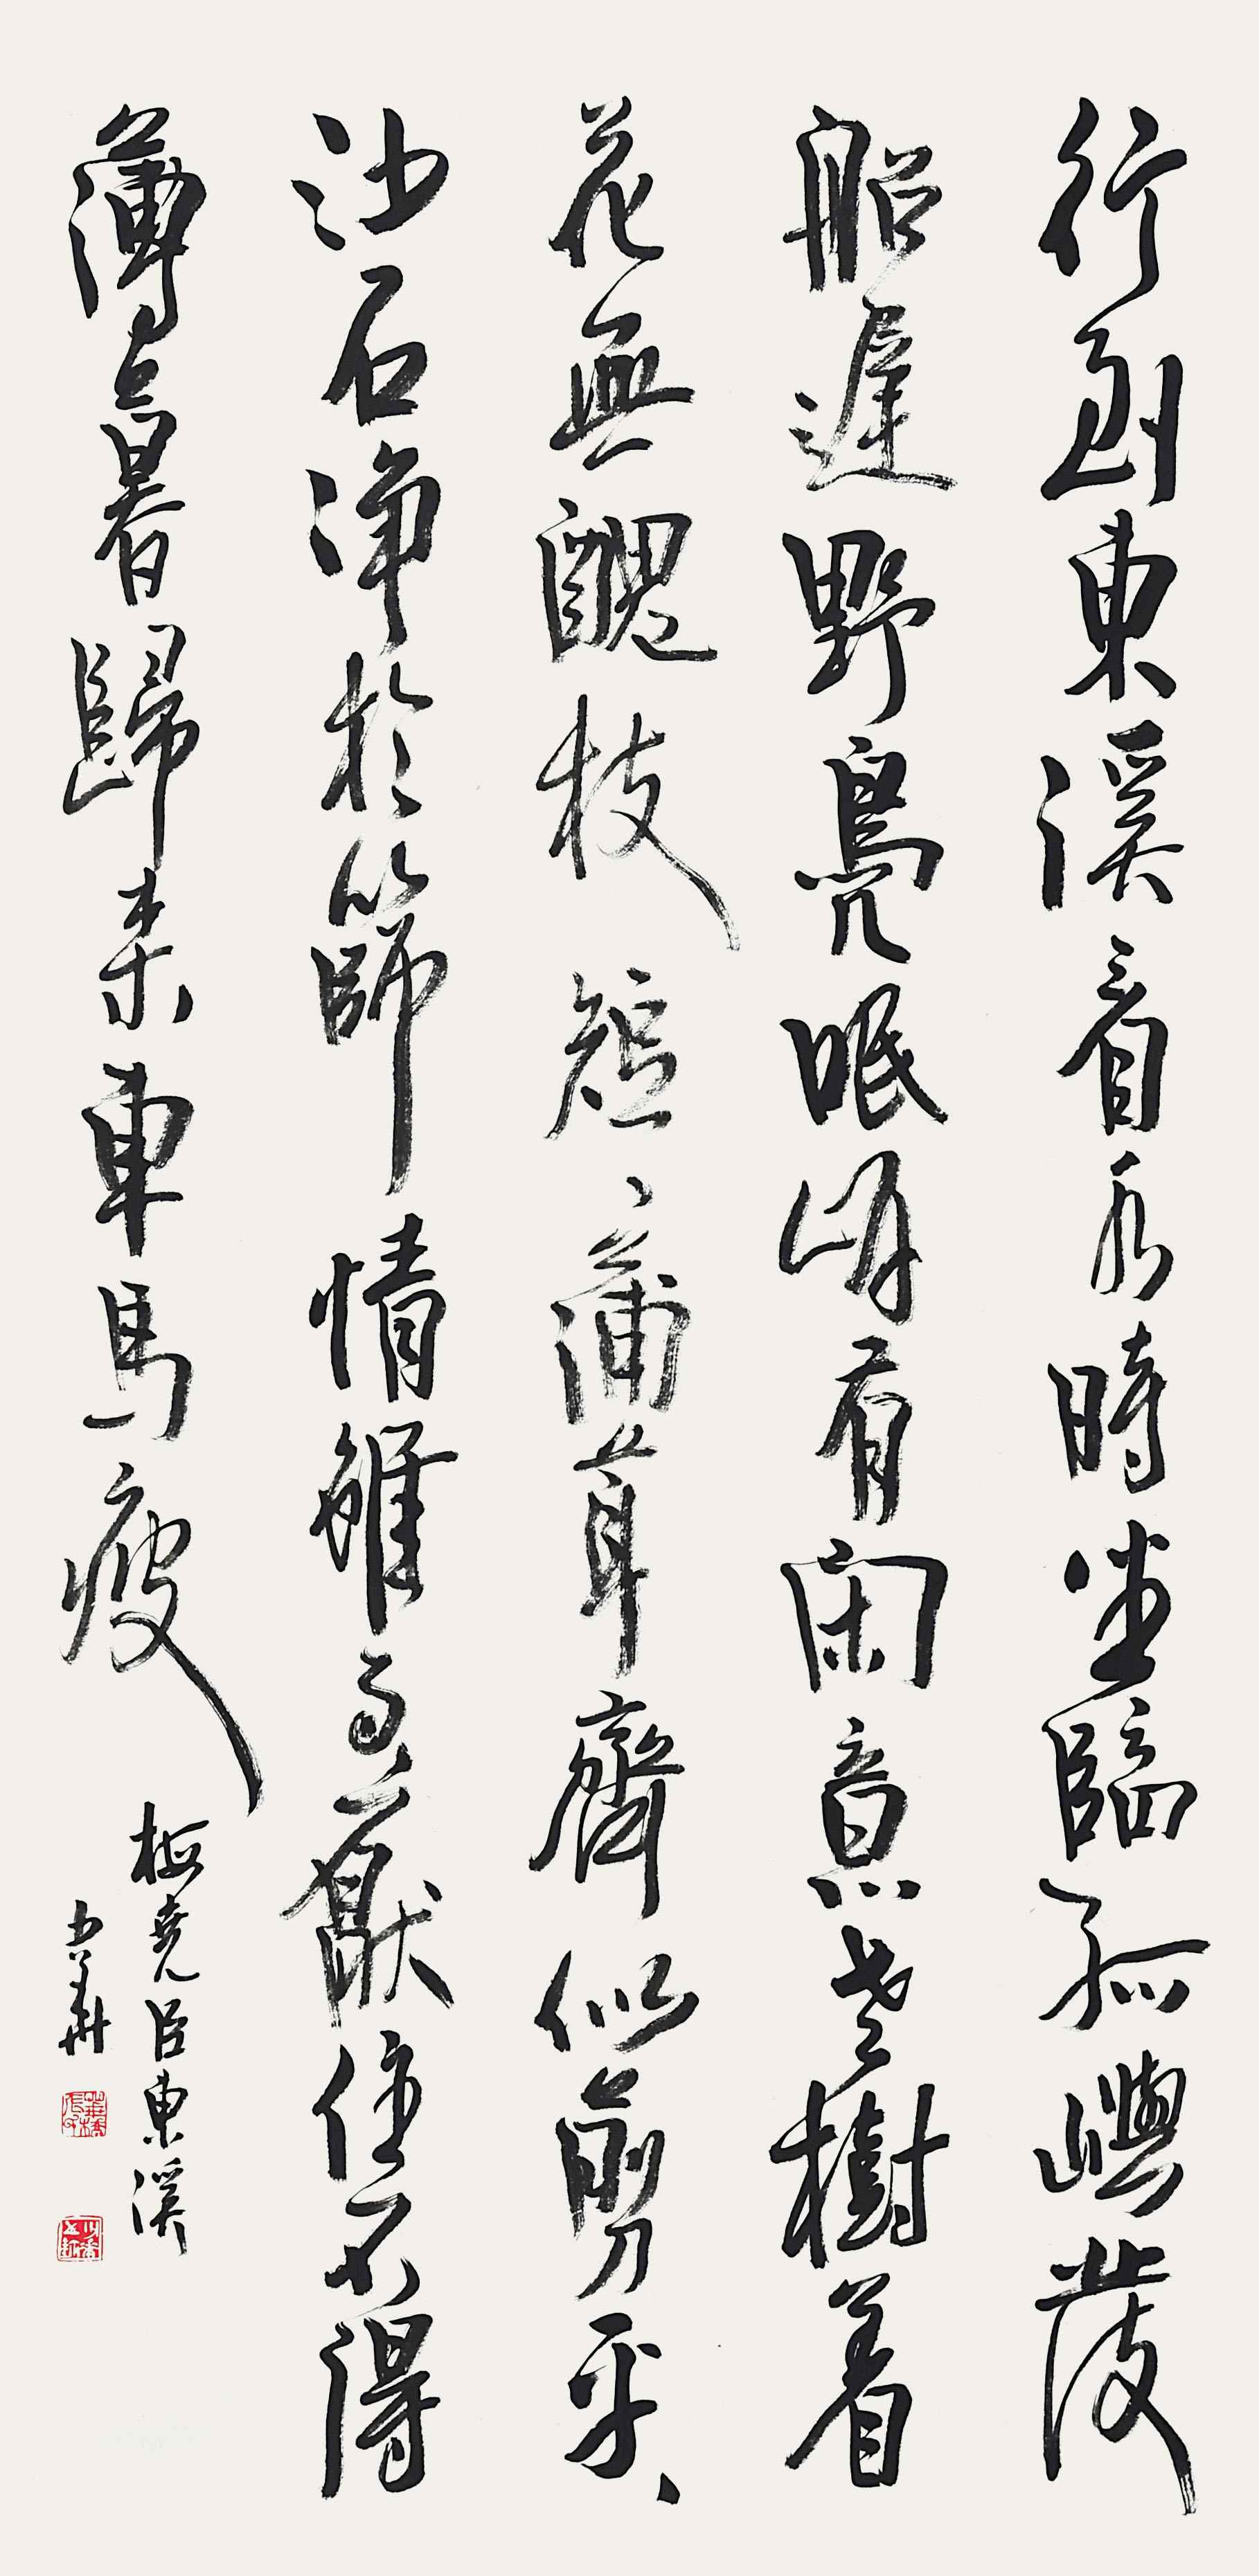 行到東溪看水時坐臨孤嶼發
船遲野鳧眠岸有閑意老樹着
花無醜枝短、蒲茸齊似剪平、
沙石淨於篩情雖不厭住不得
薄暮歸來車馬疲
梅堯臣東溪
少華